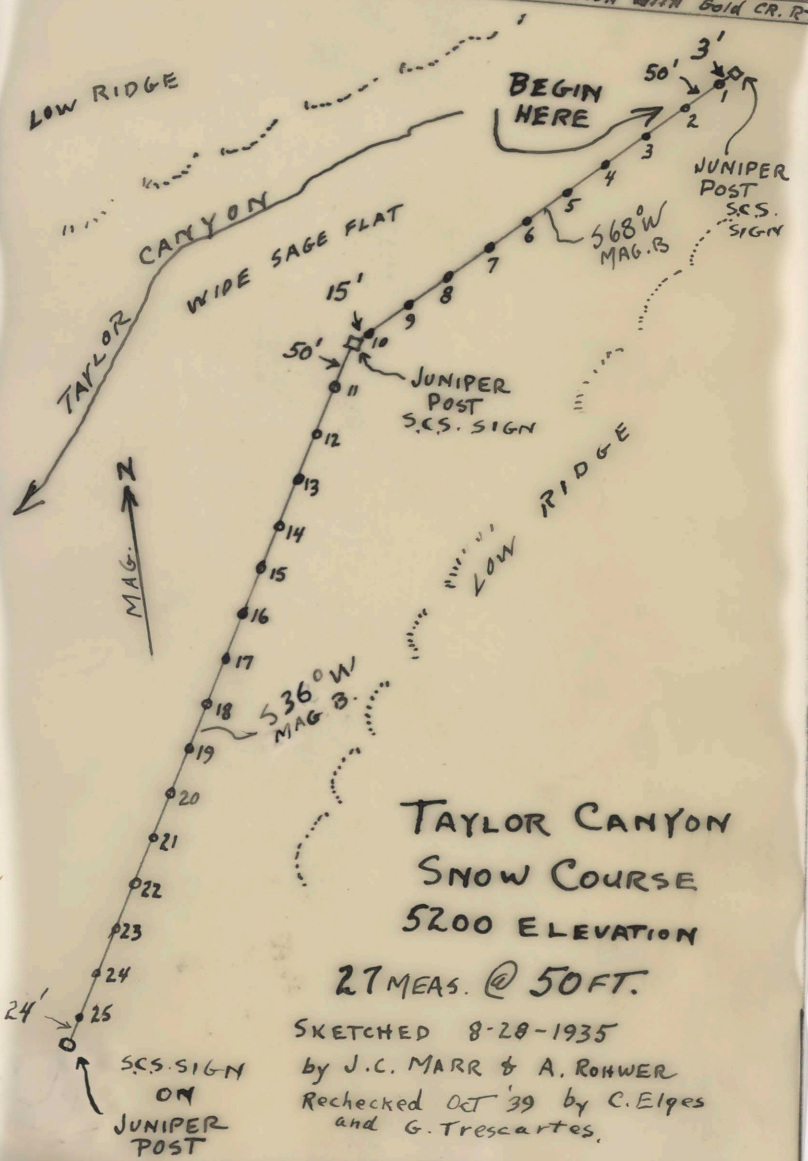 with Gold CR. R
LOW RIDGE
TAYLOR CANYON
WIDE SAGE FLAT
BEGIN
HERE
3'
50'
1
2
3
4
5
6
7
8
9
10
JUNIPER
POST
S.C.S.
SIGN
S68°W
MAG.B
15'
50'
JUNIPER
POST
S.C.S. SIGN
11
12
13
14
15
16
17
18
19
20
21
22
23
24
25
MAG. N
LOW RIDGE
S36°W
MAG B.
24'
S.C.S. SIGN
ON
JUNIPER
POST
TAYLOR CANYON
SNOW COURSE
5200 ELEVATION
27 MEAS. @ 50 FT.
SKETCHED 8-28-1935
by J.C. MARR & A. ROHWER
Rechecked OCT '39 by C. Elges
and G. Trescartes.